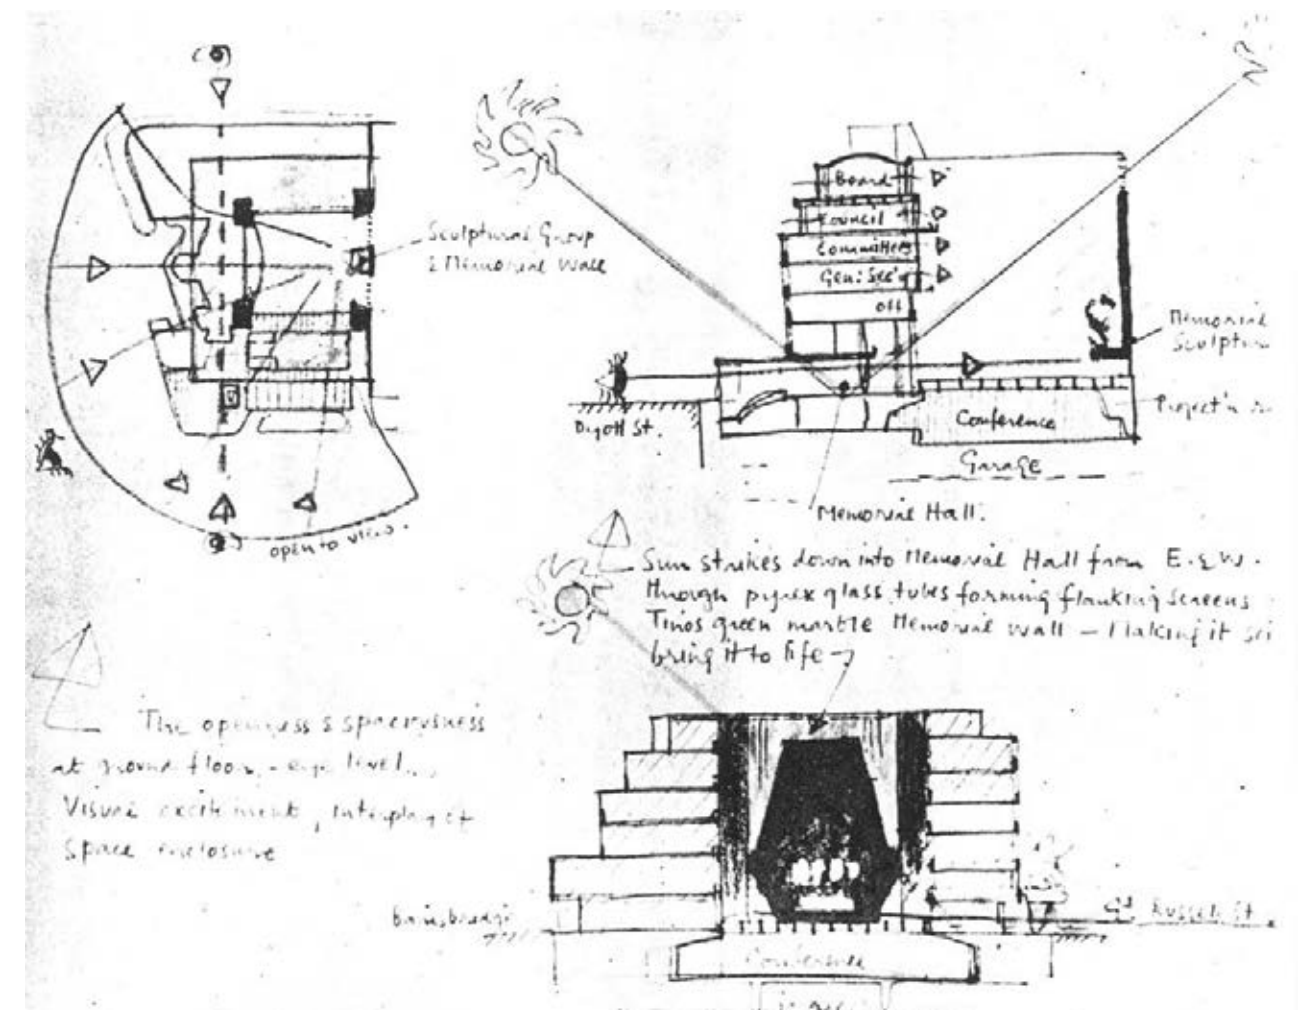 Sculptural Group
& Memorial Wall
open to view.
Board
Council
Committees
Gen: Sec'y
off
Memorial
Sculptur
Project'n
Dyott St.
Conference
Garage
Memorial Hall.
Sun strikes down into Memorial Hall from E. & W.
through pyrex glass tubes forming flanking screens
Tinos green marble Memorial wall - Making it
bring it to life
The openness & spaciousness
at ground floor - eye level..
Visual excitement, interplay of
space enclosure
Gt Russell St.
Conference